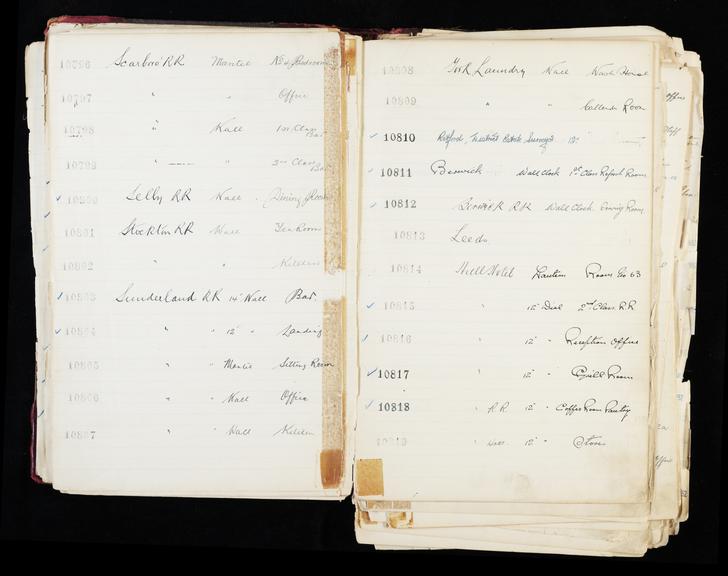 10796 Scarboro RR Mantel No 2 Bedroom
10797 " " Office
10798 " Wall 1st Class Bar
10799 " " 2nd Class Bar
10800 Selby RR Wall Dining Room
10801 Stockton RR Wall Tea Room
10802 " " Kitchen
10803 Sunderland RR 14" Wall Bar
10804 " " 12" " Landing
10805 " " Mantel Sitting Room
10806 " " Wall Office
10807 " " Wall Kitchen
10808 York Laundry Wall Wash House
10809 " " Callender Room
10810 Retford, District Estate Surveyor 12"
10811 Berwick Wall Clock 1st Class Refresh Room
10812 Berwick RR Wall Clock Dining Room
10813 Leeds
10814 Hull Hotel Room No 63
10815 " 12" Dial 2nd Class RR
10816 " 12" " Reception Office
10817 " 12" " Grill Room
10818 " RR 12" " Coffee Room Pantry
10819 " 12" " Stores